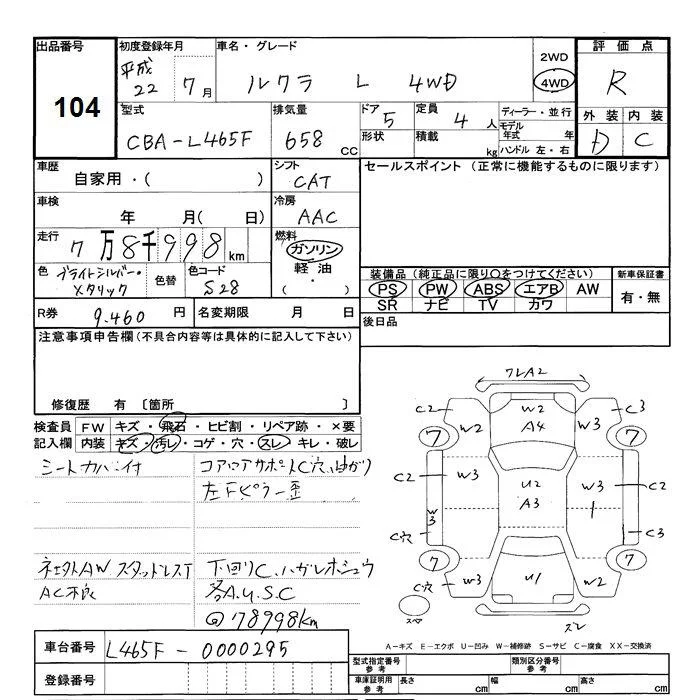 出品番号 初度登録年月 車名・グレード 評価点
104
平成 22 年 7 月 ルクラ L 4WD 2WD 4WD R
型式 排気量 ドア 定員 ディーラー・並行 外装 内装
CBA-L465F 658 CC 5 4 人 モデル年式 年 D C
形状 積載 kg ハンドル 左・右
車歴 シフト セールスポイント (正常に機能するものに限ります)
自家用・( ) CAT
車検 冷房
年 月( 日) AAC
走行 燃料
7万8千998 km ガソリン 軽油 ・( )
色 色替 色コード 装備品(純正品に限り○をつけてください) 新車保証書
ブライトシルバー・メタリック S28 PS PW ABS エアB AW 有・無
SR ナビ TV カワ
R券 9.460 円 名変期限 月 日 後日品
注意事項申告欄(不具合内容等は具体的に記入して下さい)
修復歴 有 〔箇所
検査員記入欄 FW キズ・飛石・ヒビ割・リペア跡・×要
内装 キズ・汚レ・コゲ・穴・スレ・キレ・破レ
シートカバー付 コアロアサポートC穴、曲がり
左Fピラー歪
社外AW スタッドレスT 下回りC、ハガレホシュウ
AC不良 各A.U.S.C
@78998km
車台番号 L465F-0000295
登録番号
フレA2
C2 W2 W2 A4 W3 C3
7 7
C2 W3 U2 A3 W3 C2
W3 1
C穴 C3
7 7
C穴 W3 U1 W2
スペア スレ
A-キズ E-エクボ U-凹み W-補修跡 S-サビ C-腐食 XX-交換済
型式指定番号 参考 類別区分番号 参考
車庫証明用 参考 長さ cm 幅 cm 高さ cm